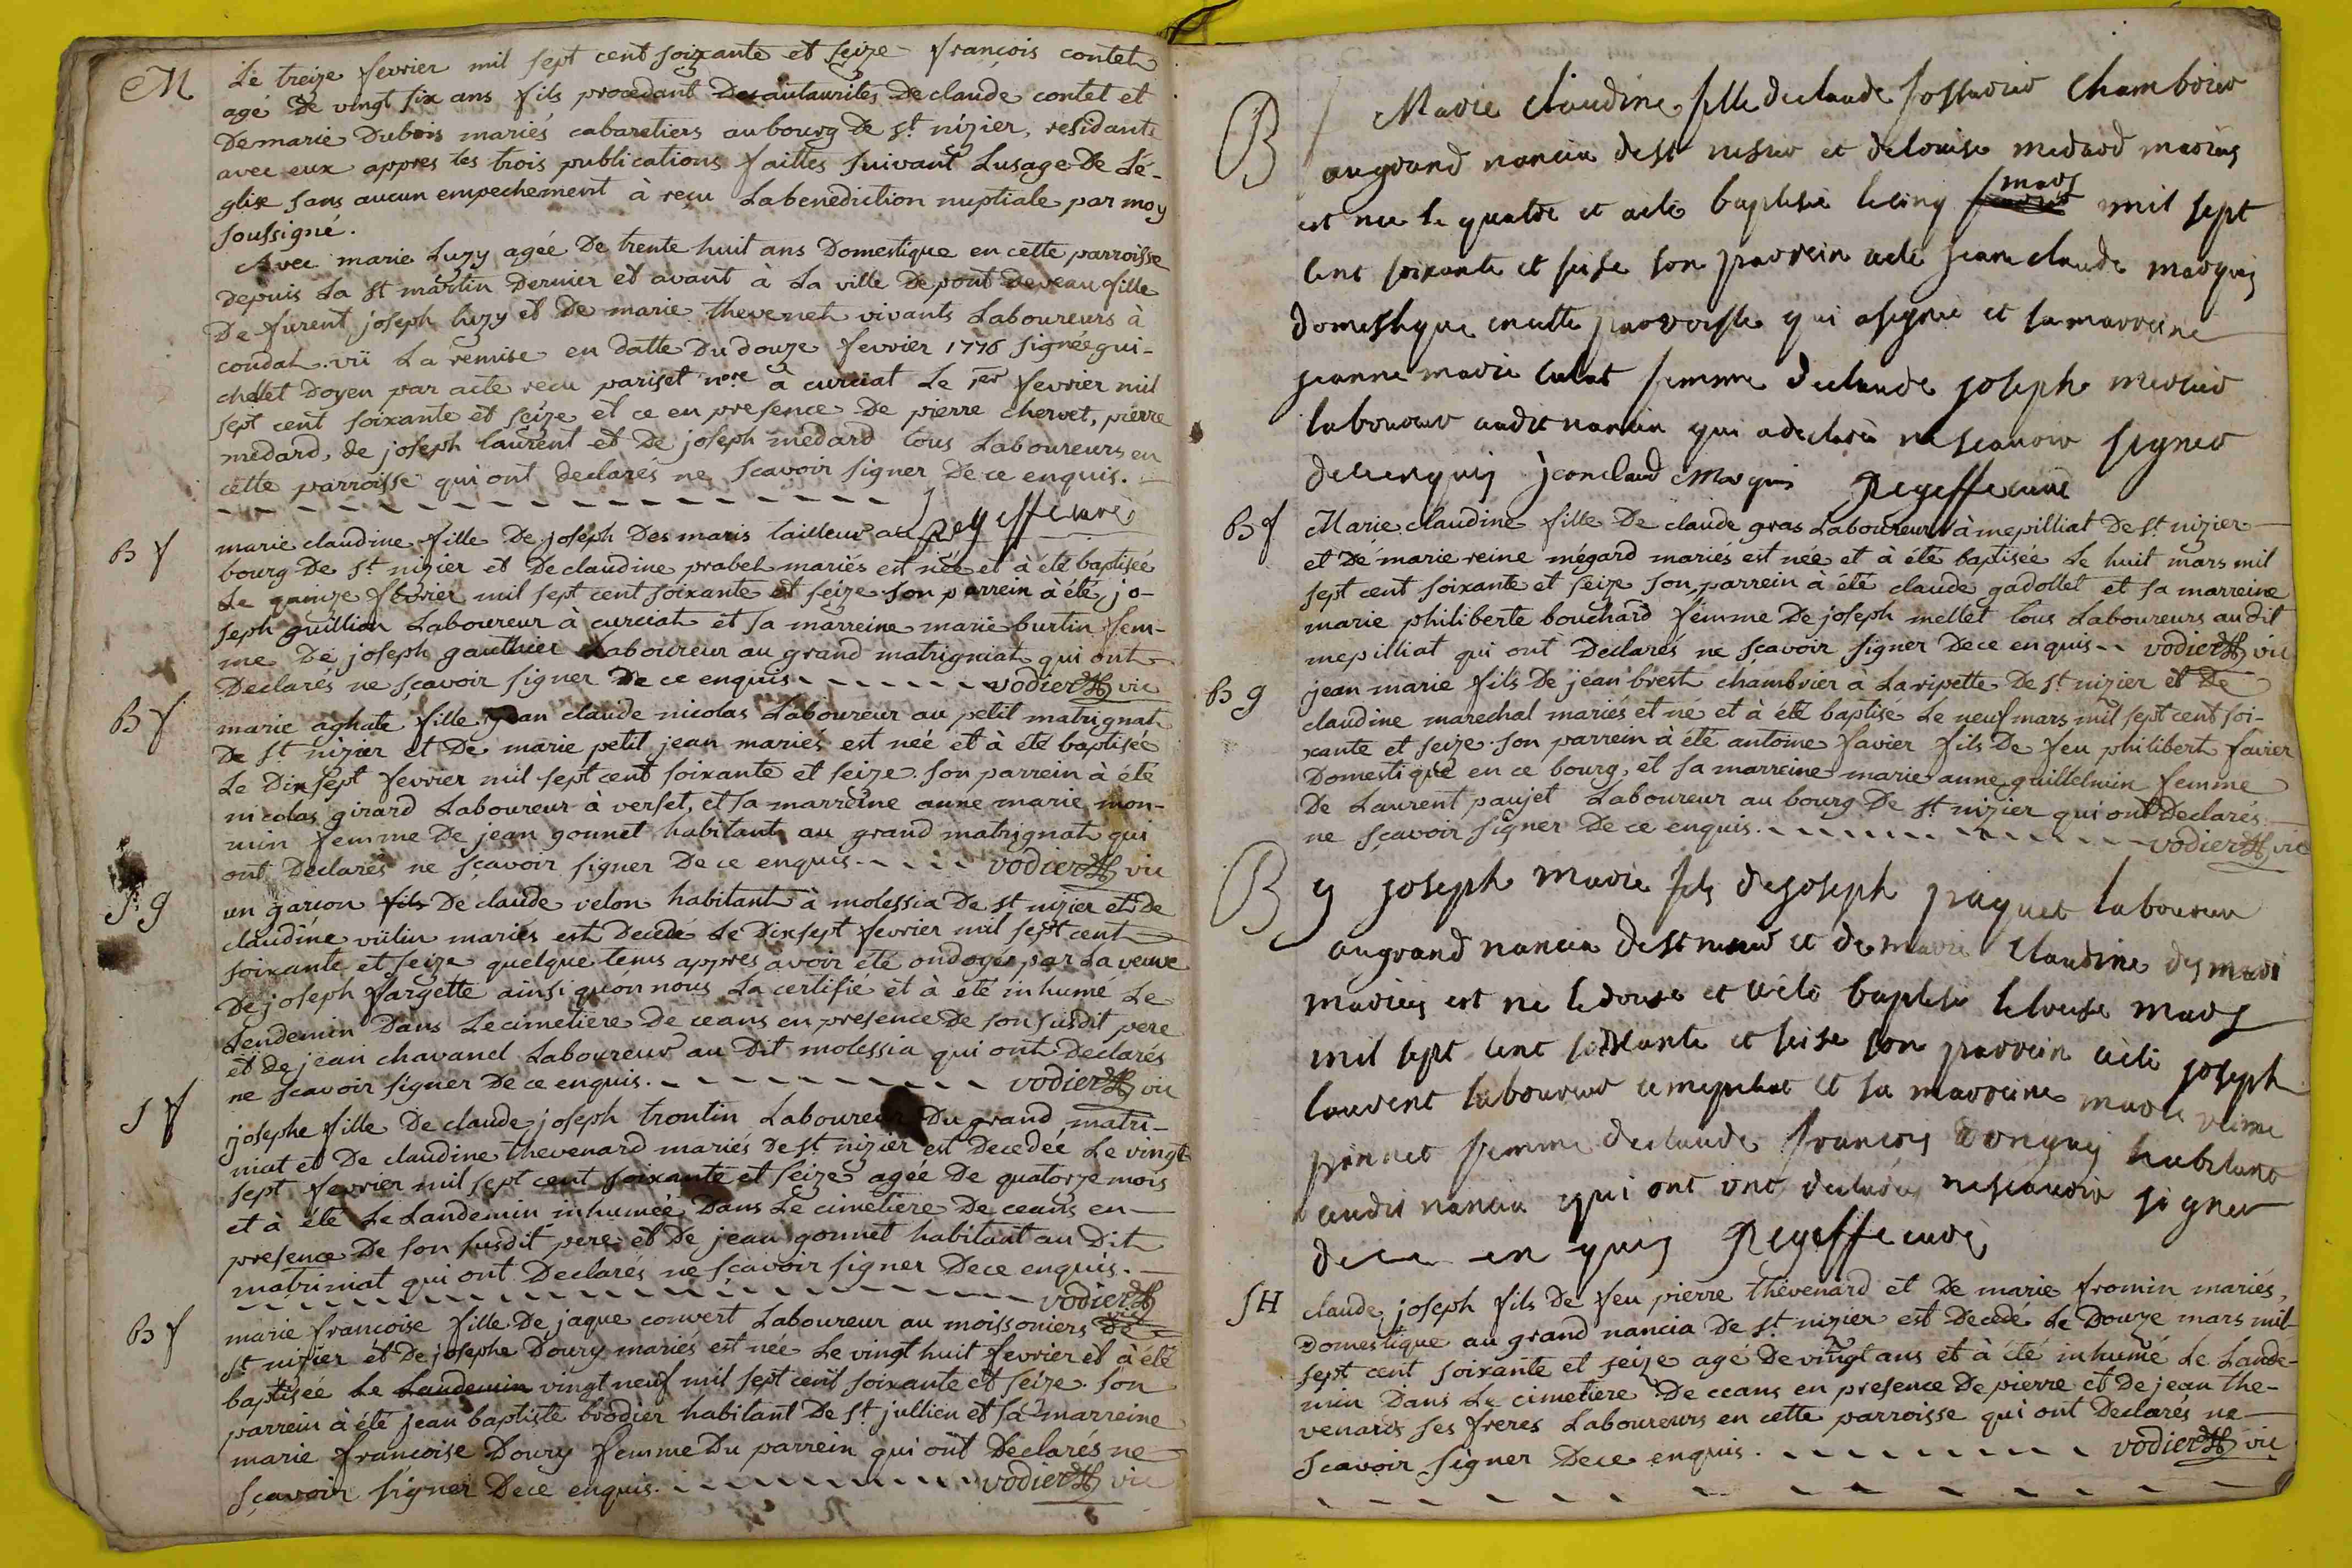 M
Le treize fevrier mil sept cent soixante et seize françois contet
agé De vingt six ans fils procedant Des autaurités De claude contet et
De marie Dubois mariés cabaretiers au bourg De st nizier, residant
avec eux appres les trois publications faittes suivant Lusage De Lé-
glise sans aucun empechement à reçu La benediction nuptiale par moy
soussigné.
Avec marie Luzy agée De trente huit ans Domestique en cette parroisse
Depuis La st martin Dernier et avant à La ville De pont De veau fille
De furent joseph luzy et De marie thevenet vivants Laboureurs à
condal. vü La remise en datte Du douze fevrier 1776 signée gui-
chellet Doyen par acte reçu pariset nre à curciat Le 1er fevrier mil
sept cent soixante et seize et ce en presence De pierre chervet, pierre
medard, de joseph laurent et De joseph medard tous Laboureurs en
cette parroisse qui ont declarés ne scavoir signer De ce enquis.
B f
marie claudine fille De joseph Des maris tailleur au
bourg De st nizier et De claudine prabel mariés est née et à été baptisée
Le quinze fevrier mil sept cent soixante et seize son parrein à été jo-
seph guillion Laboureur à curciat et sa marreine marie burtin fem-
me De joseph gauthier Laboureur au grand matrigniat qui ont
Declarés ne scavoir signer De ce enquis vodier vic
B f
marie aghate fille jean claude nicolas Laboureur au petit matrignat
De st nizier et De marie petit jean mariés est née et à été baptisée
Le Dix sept fevrier mil sept cent soixante et seize. son parrein à été
nicolas girard Laboureur à verset, et sa marreine anne marie mon-
nin femme De jean gonnet habitant au grand matrignat qui
ont Declarés ne sçavoir signer De ce enquis vodier vic
S. g
un garçon fils De claude velon habitant à molessia De st nizier et De
claudine viilin mariés est decedé Le Dix sept fevrier mil sept cent
soixante et seize quelque tems appres avoir été ondoyé par La veuve
De joseph fargette ainsi qu'on nous La certifié et à été inhumé Le
Lendemin Dans Le cimetiere De ceans en presence De son susdit pere
et De jean chavanel Laboureur au Dit molessia qui ont Declarés
ne scavoir signer De ce enquis. vodier vic
S f
josephe fille De claude joseph trontin Laboureur Du grand matri-
niat et De claudine thevenard mariés De st nizier est Decedée Le vingt
sept fevrier mil sept cent soixante et seize agée De quatorze mois
et à été Le Landemin inhumée Dans Le cimetiere De ceans en
presence De son susdit pere et De jean gonnet habitant au Dit
matriniat qui ont Declarés ne scavoir signer De ce enquis.
vodier vic
B f
marie francoise fille De jaque convert Laboureur au moissoniers De
st nizier et De josephe Doury mariés est née Le vingt huit fevrier et à été
baptisée Le Landemin vingt neuf mil sept cent soixante et seize. son
parrein à été jean baptiste brodier habitant De st jullien et sa marreine
marie francoise Doury femme Du parrein qui ont Declarés ne
sçavoir signer De ce enquis. vodier vic
B f
Marie claudine fille de claude chambrier
au grand nancia de st nisier et de louise medard mariés
est née le quatre et a été baptisée le cinq mars mil sept
cent soixante et seise son parrein a été jean claude marquis
domestique en cette parroisse qui a signé et sa marreine
jeanne marie femme de claude joseph mercier
laboureur audit nancia qui a declaré ne scavoir signer
de ce enquis jean claud marquis
B f
Marie claudine fille De claude gras Laboureur à mepilliat De st nizier
et De marie reine mégard mariés est née et à été baptisée Le huit mars mil
sept cent soixante et seize son parrein à été claude gadollet et sa marreine
marie philiberte bouchard femme De joseph mellet tous Laboureurs au dit
mepilliat qui ont Declarés ne sçavoir signer De ce enquis vodier vic
B g
jean marie fils De jean brest chambrier à La ripette De st nizier et De
claudine marechal mariés et né et à été baptisé Le neuf mars mil sept cent soi-
xante et seize. son parrein à été antoine favier fils De feu philibert favier
Domestique en ce bourg, et sa marreine marie anne guillelmin femme
De Laurent paujet Laboureur au bourg De st nizier qui ont Declarés
ne sçavoir signer De ce enquis. vodier vic
B g
joseph marie fils de joseph paquet laboureur
au grand nancia de st nisier et de marie claudine des mari
mariés est né le douse et a été baptisé le treise mars
mil sept cent soixante et seise son parrein a été joseph
laurent laboureur a mepilliat et sa marreine marie reine
femme de claude francois habitant
audit nancia qui ont ont declarés ne scavoir signer
de ce en quis
S H
claude joseph fils De feu pierre thevenard et De marie fromin mariés,
Domestique au grand nancia De st nizier est Decedé Le Douze mars mil
sept cent soixante et seize agé De vingt ans et à été inhumé Le Lande-
min Dans Le cimetiere De ceans en presence De pierre et De jean the-
venard ses freres Laboureurs en cette parroisse qui ont Declarés ne
scavoir signer De ce enquis. vodier vic